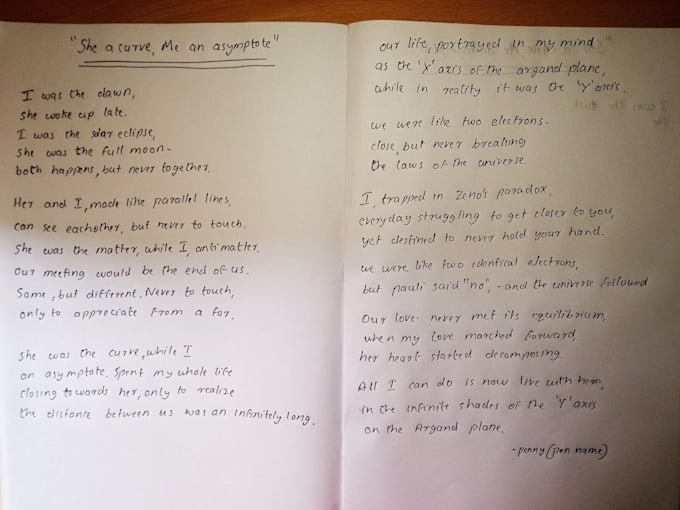 "She a curve, Me an asymptote"
I was the dawn,
she woke up late.
I was the solar eclipse,
she was the full moon-
both happens, but never together.
Her and I, made like parallel lines,
can see eachother, but never to touch.
She was the matter, while I, antimatter.
Our meeting would be the end of us.
Same, but different. Never to touch,
only to appreciate from a far.
She was the curve, while I
an asymptote. Spent my whole life
closing towards her, only to realize
the distance between us was an infinitely long.
our life, portrayed in my mind
as the 'X' axis of the argand plane,
while in reality it was the 'Y' axis.
we were like two electrons-
close, but never breaking
the laws of the universe.
I, trapped in Zeno's paradox,
everyday struggling to get closer to you,
yet destined to never hold your hand.
we were like two identical electrons,
but pauli said "no", - and the universe followed
Our love never met its equilibrium,
when my love marched forward,
her heart started decomposing.
All I can do is now live with here,
in the infinite shades of the 'Y' axis
on the Argand plane.
-penny (pen name)